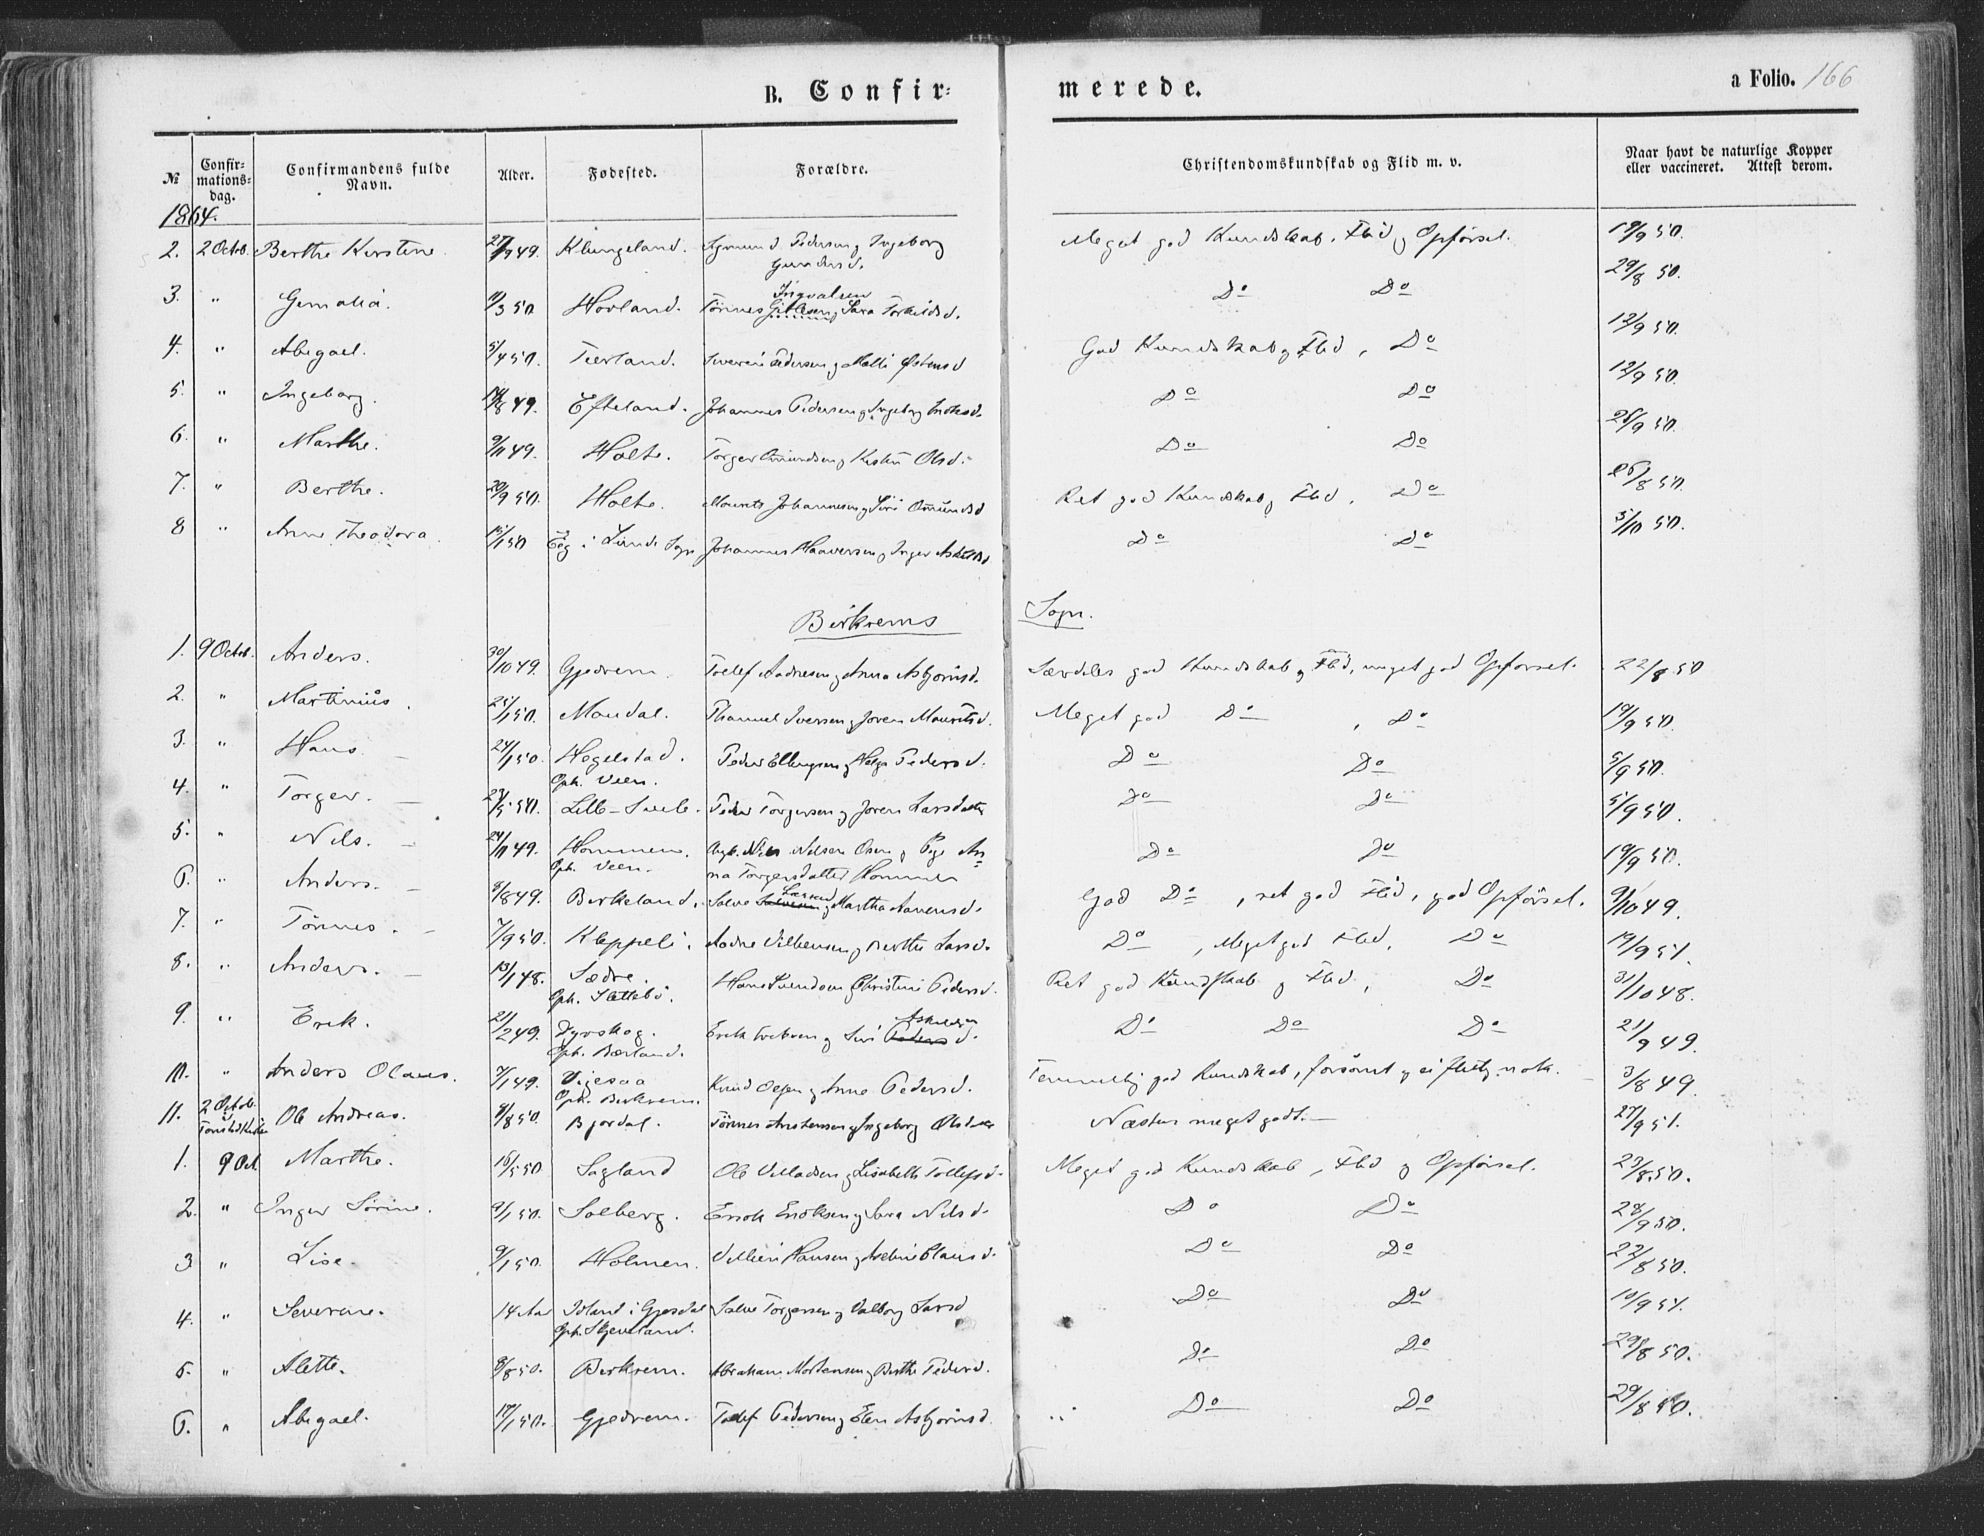 B. Confir-
merede.
a Folio. 166
№ Confir-mations-dag. Confirmandens fulde Navn. Alder. Fødested. Forældre. Christendomskundskab og Flid m. v. Naar havt de naturlige Kopper eller vaccineret. Attest derom.
1864.
2. 2 Octob. Berthe Kirstine Klungeland. Pedersen og Ingeborg Meget god Kundskab, Flid og Opførsel. 19/9 50.
Gundersd.
Ingvalsen
3. " 11/3 50 Hovland. Tønnes Gitlesen og Sara Torkildsd. Do Do 29/8 50.
4. " Abigael. 5/4 50. Pedersen og Malli Østensd God Kundskab og Flid, Do 12/9 50.
5. " Ingeborg. 14/8 49. Efteland. Johannes Pedersen og Ingeborg Do Do 12/9 50.
6. " Marthe. 9/11 49. Holte. Torger Omundsen og Olsd. Do Do 26/9 50.
7. " Berthe. 20/9 50. Holte. Maurits Johannesen og Siri Omundsd Ret god Kundskab og Flid, Do 26/8 50.
8 " Anne Theodora. 15/1 50 Eeg i Lunde Sogn Johannes Haaversen og Inger Do Do 5/10 50.
Birkrems Sogn.
1. 9 Octob. Anders. 30/10 49. Gjedrem. Tollef Aadnesen og Anna Asbjørnsd. Særdeles god Kundskab og Flid, meget god Opførsel. 22/8 50
2. " Martinius. 25/1 50. Mandal. Iversen og Joren Mauritsd. Meget god Do, Do 19/9 50.
3. " Hans. 24/1 50. Hegelstad. Peder Ellingsen og Helga Pedersd. Do Do 5/9 50.
Oph. Veen.
4. " Torger. 27/5 50. Peder Torgersen og Joren Larsdatter Do Do 5/9 50.
5. " Nils. 24/11 49. Hommen. Nils Nilsen og Pige An Do Do 19/9 50.
Oph. Veen. na Torgersdatter Hommen
6. " Anders. 8/8 49. Birkeland. Salve og Martha God Do, ret god Flid, god Opførsel. 9/10 49.
7. " Tønnes. 7/9 50. Kleppeli. Aadne Villumsen og Berthe Larsd. Do, Meget god Flid, Do 19/9 51.
8. " Anders. 13/1 48. Sædre. Hans Svendsen og Christine Pedersd. Ret god Kundskab og Flid, Do 31/10 48.
Oph. Slettebø.
9. " Erik. 21/2 49. Dyrskog. Erik og Siri Do Do Do 21/9 49.
Oph. Bærland.
10. " Anders Olaus. 7/1 49. Vigesaa Knud Olsen og Anne Pedersd. Temmelig god Kundskab, forsømt og ei flittig nok. 3/8 49.
Oph. Birkrem.
11. 2 Octob. i Tonstad Kirke Ole Andreas. 4/8 50. Bjordal. Tønnes og Ingeborg Olsdatter Næsten meget godt. 27/9 51.
1. 9 Oct. Marthe. 16/5 50. Sagland Ole Villadsen og Lisabeth Tollefsd. Meget god Kundskab, Flid og Opførsel. 23/8 50.
2. " Inger Sørine. 9/1 50. Solberg. Erik Eriksen og Sara Nilsd. Do Do 28/9 50.
3 " Lise. 9/1 50. Holmen. Hansen og Olausd. Do Do 22/8 50.
4. " Severine. 14 Aar Idland i Gjesdal Salve Torgersen og Valborg Larsd Do Do 10/9 51.
Oph. Skjeveland.
5. " Alette. 8/8 50. Birkrem. Abraham Mortensen og Berthe Pedersd. Do Do 29/8 50.
6. " Abigael. 17/1 50. Gjedrem. Tollef Pedersen og Elen Asbjørnsd. Do Do 29/8 50.